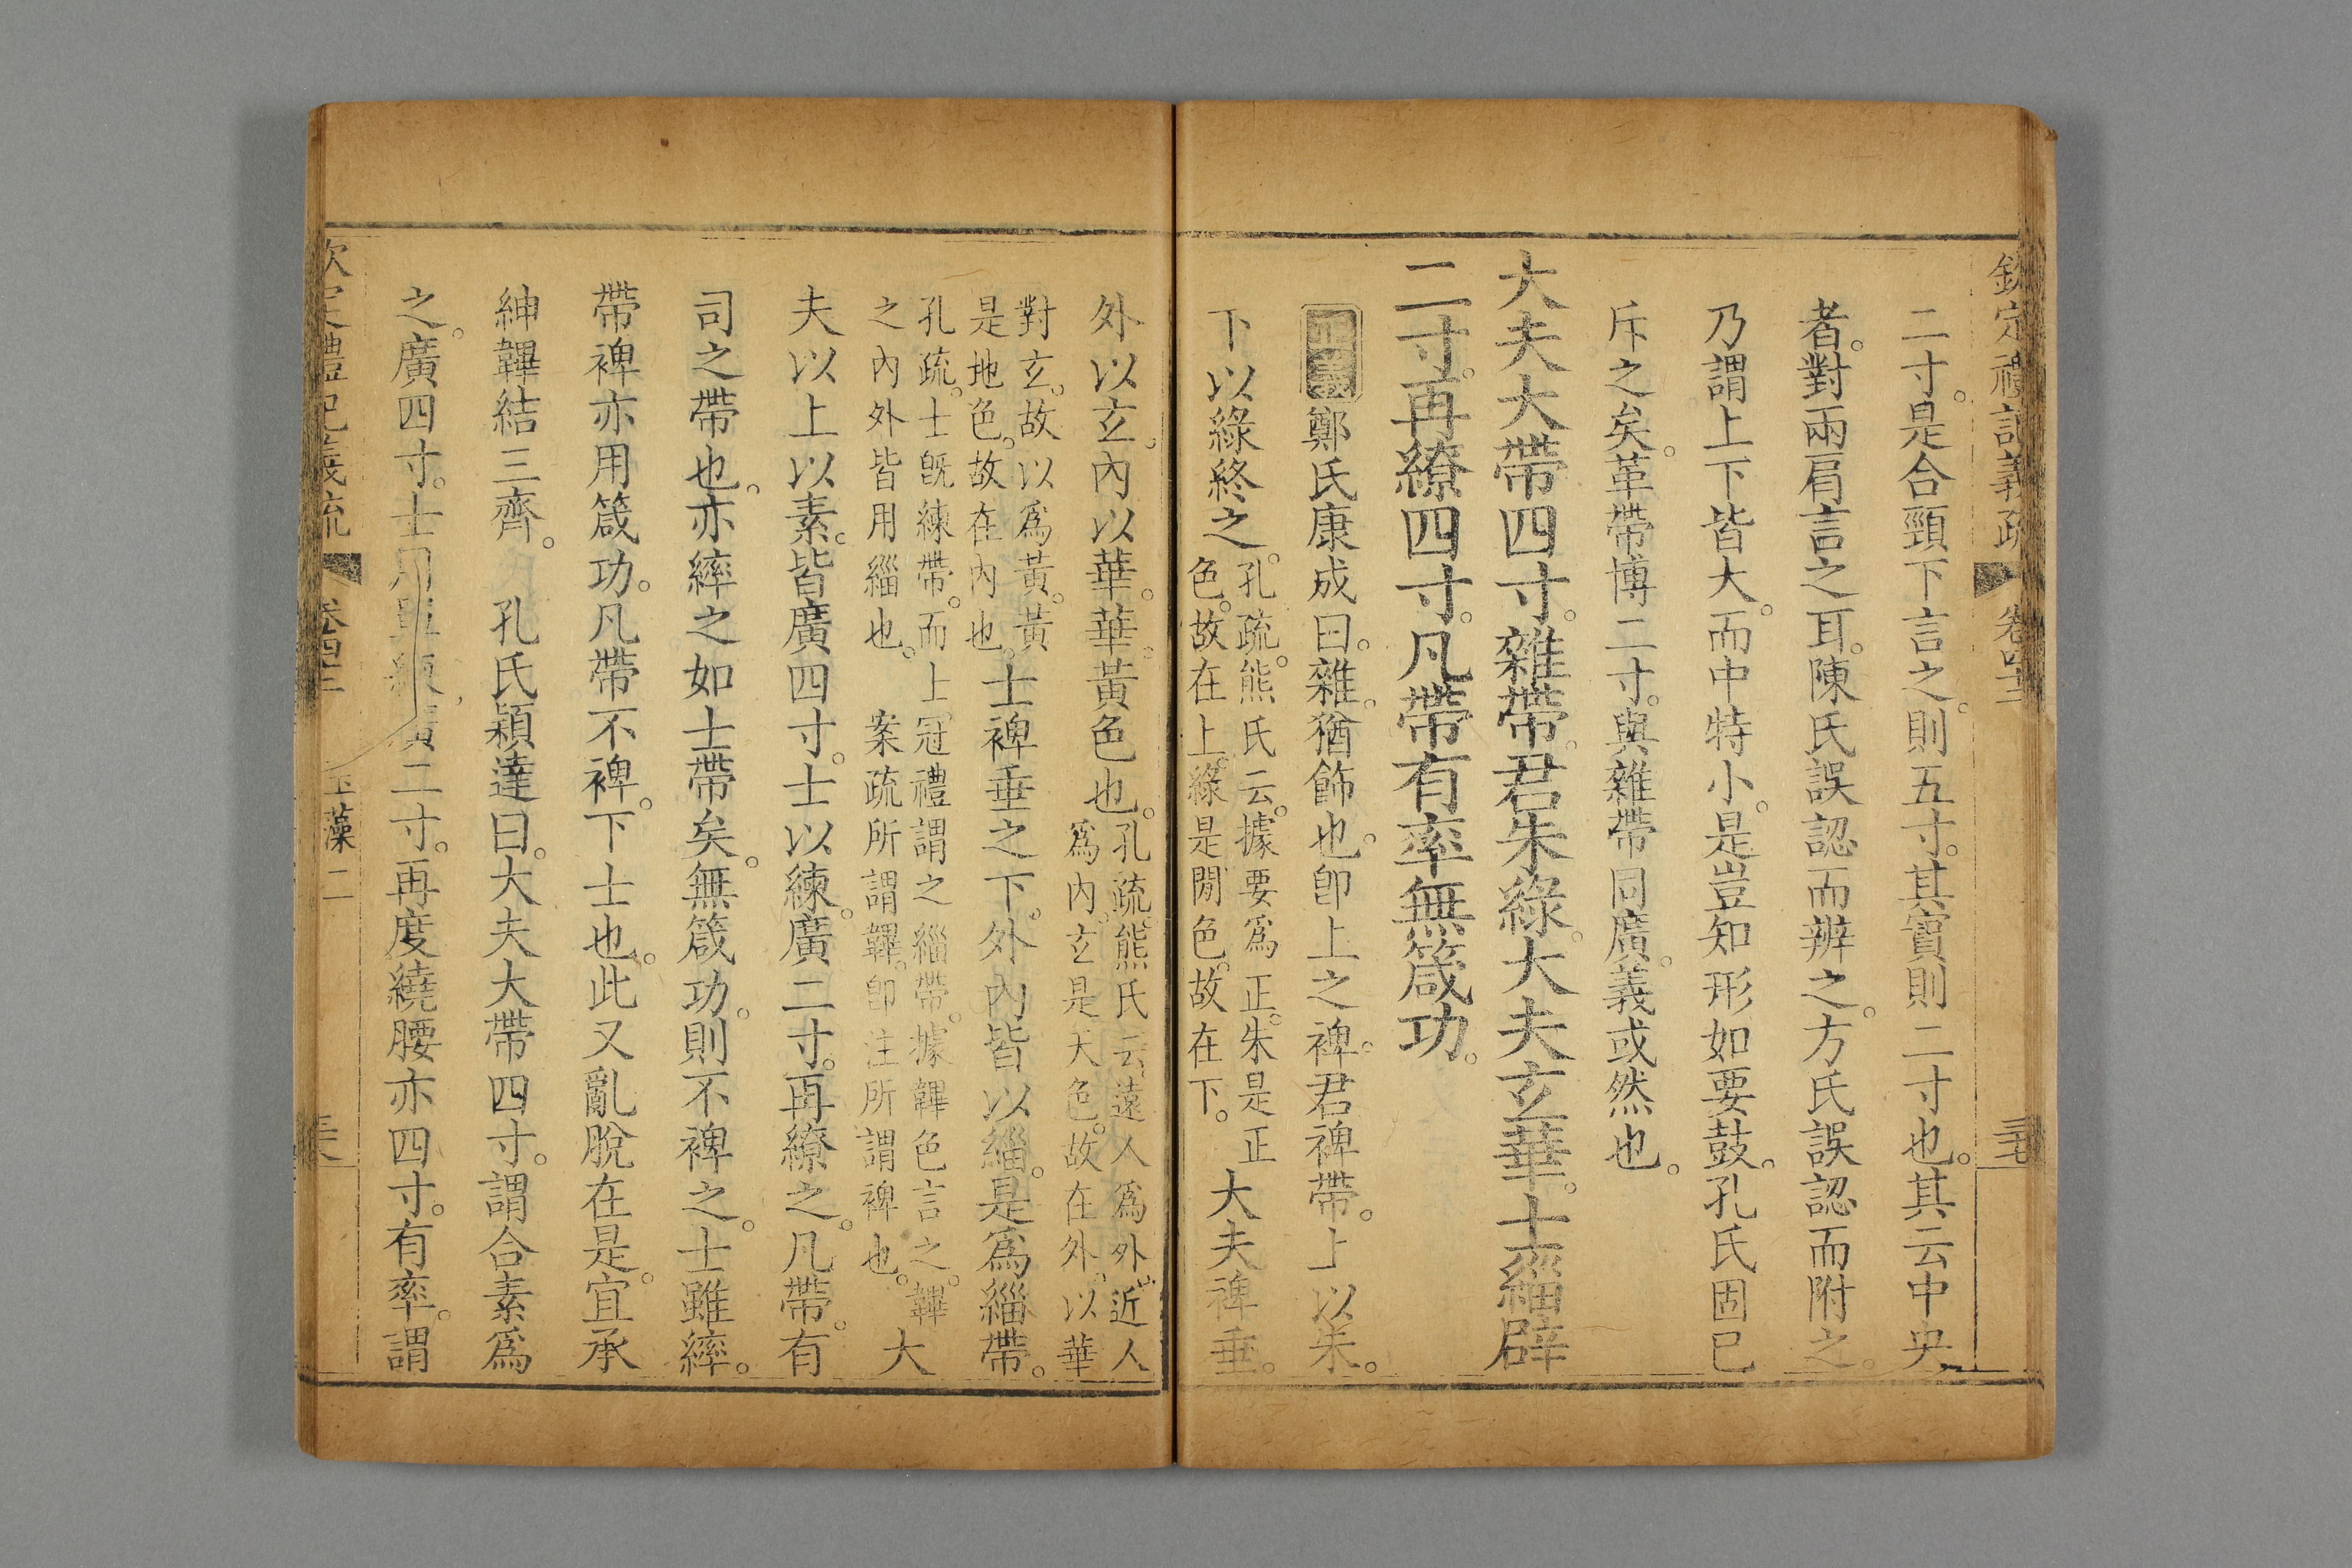 欽定禮記義疏 卷四十二
二寸。是合頸下言之。則五寸。其實則二寸也。其云中央
者。對兩肩言之耳。陳氏誤認而辨之。方氏誤認而附之。
乃謂上下皆大。而中特小。是豈知形如要鼓。孔氏固已
斥之矣。革帶博二寸。與雜帶同廣。義或然也。
大夫大帶四寸。雜帶。君朱綠。大夫玄華。士緇辟
二寸。再繚四寸。凡帶有率無箴功。
正義 鄭氏康成曰。雜。猶飾也。卽上之裨。君裨帶。上以朱。
下以綠終之。
孔疏。熊氏云。據要爲正。朱是正
色。故在上。綠是閒色。故在下。
大夫裨垂。
外以玄。內以華。華。黃色也。
孔疏。熊氏云。遠人爲外。近人
爲內。玄是天色。故在外。以華
對玄。故以爲黃。黃
是地色。故在內也。
士裨垂之下。外內皆以緇。是爲緇帶。
孔疏。士旣練帶。而上冠禮謂之緇帶。據鞸色言之。鞸
之內外皆用緇也。 案疏所謂鞸。卽注所謂裨也。
大
夫以上以素。皆廣四寸。士以練。廣二寸。再繚之。凡帶。有
司之帶也。亦繂之如士帶矣。無箴功。則不裨之。士雖繂。
帶裨亦用箴功。凡帶不裨。下士也。此又亂脫在是。宜承
紳韠結三齊。 孔氏穎達曰。大夫大帶四寸。謂合素爲
之。廣四寸。士用 廣二寸。再度繞腰亦四寸。有率。謂
欽定禮記義疏 卷四十二 玉藻二